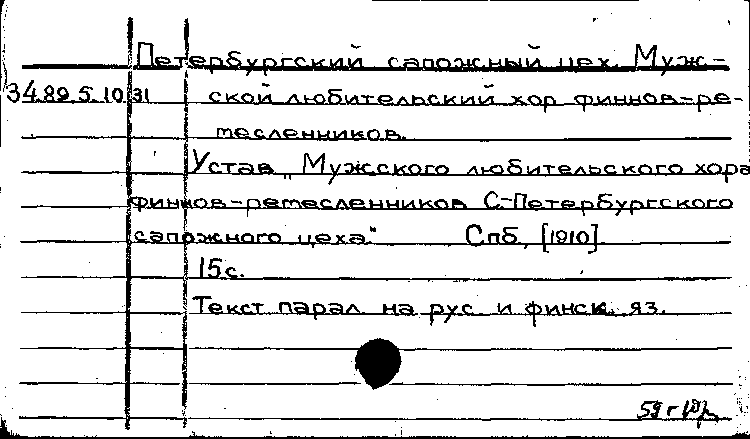 Петербургский сапожный цех. Муж-
34.89.5.1031 ской любительский хор финнов-ре-
месленников.
Устав „Мужсского любительского хора
финнов-ремесленников С.-Петербургского
сапожного цеха." Спб, [1910]
15 с.
Текст парал. на рус. и финск. яз.
59 г